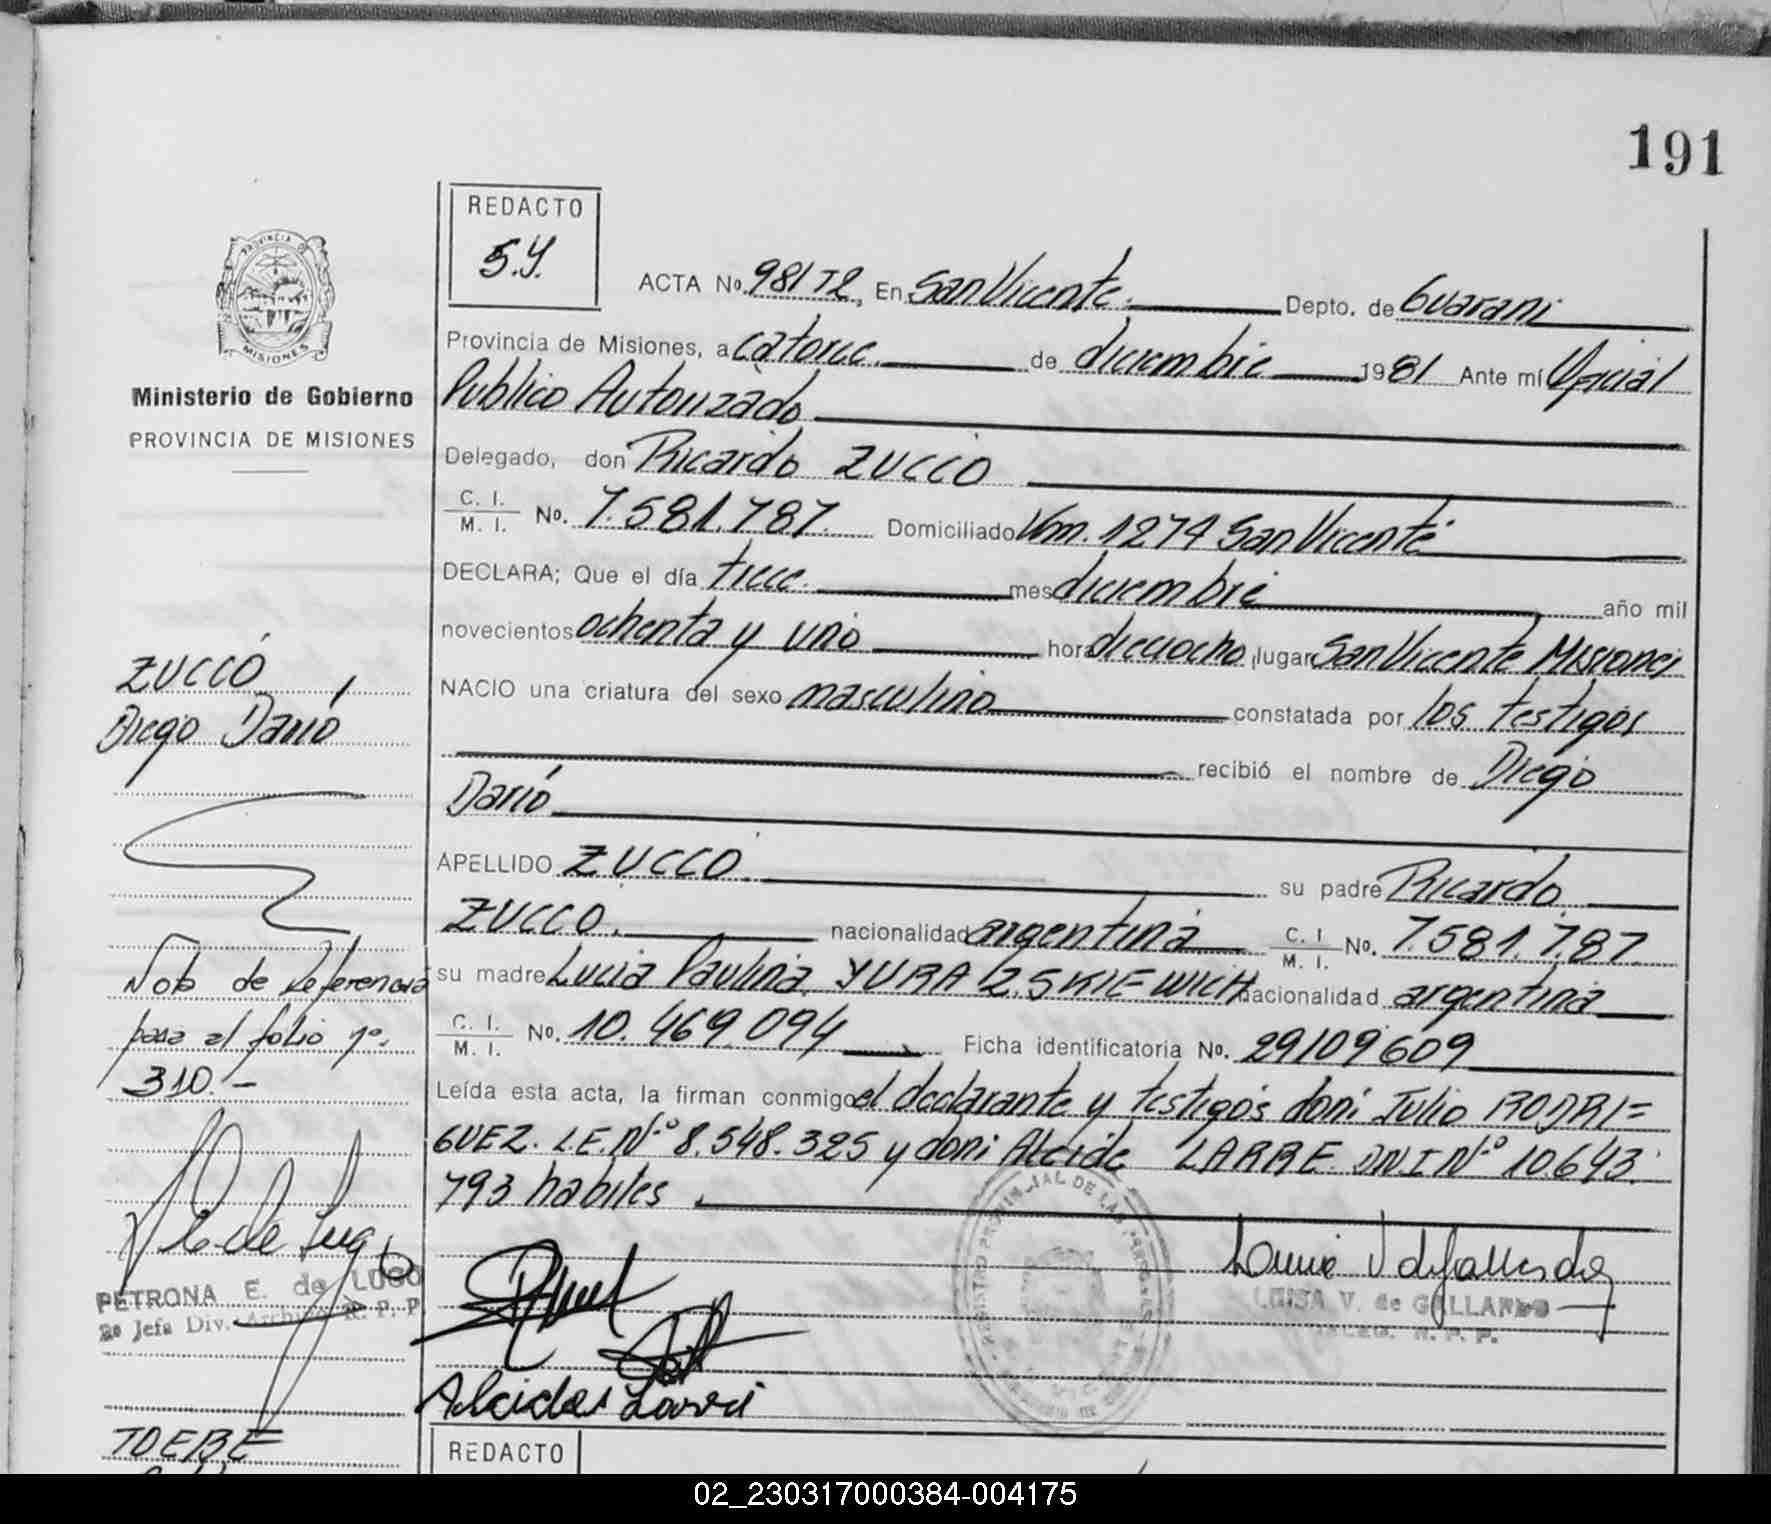 191
REDACTO
S.Y.
PROVINCIA DE
MISIONES
Ministerio de Gobierno
PROVINCIA DE MISIONES
ACTA No. 981T2, En San Vicente. Depto. de Guarani
Provincia de Misiones, a catorce. de diciembre 1981 Ante mí Oficial
Publico Autorizado
Delegado, don Ricardo ZUCCO
C. I.
M. I. No. 7.581.787. Domiciliado Km. 1274 San Vicente
DECLARA; Que el día trece. mes diciembre año mil
novecientos ochenta y uno hora dieciocho, lugar San Vicente Misiones
NACIO una criatura del sexo masculino constatada por los testigos
recibió el nombre de Diego
Darió
APELLIDO ZUCCO. su padre Ricardo
ZUCCO. nacionalidad argentina C. I.
M. I. No. 7.581.787.
su madre Lucia Paulina YURA 2.SKIEWICH nacionalidad argentina
C. I.
M. I. No. 10.469.094 Ficha identificatoria No. 29109609
Leída esta acta, la firman conmigo el declarante y testigos doni Julio RODRI=
GUEZ. L.E.Nº 8.548.325 y doni Alcide LARRE. DNI Nº 10.643.
793 habiles
ZUCCO
Diego Darió
Nota de Referencia
para el folio nº.
310.-
PETRONA E. de LUGO
2º Jefa Div. Archivo R. P. P.
Alcides Larré
LUISA V. de GALLARDO
R. P. P.
TOEBE
REDACTO
02_230317000384-004175